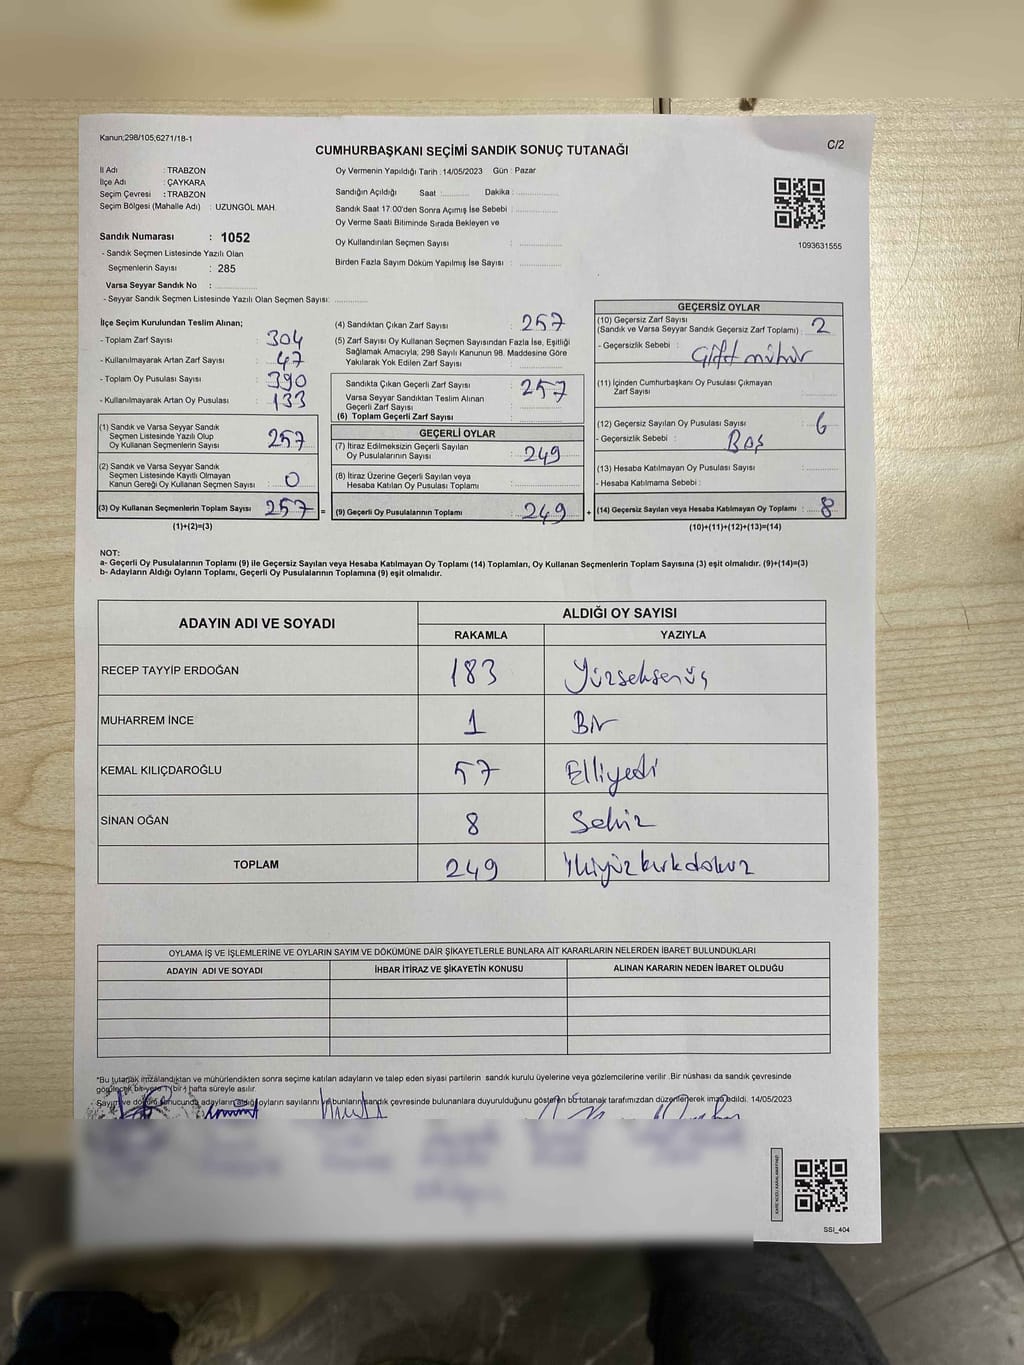 Kanun;298/105,6271/18-1
C/2
CUMHURBAŞKANI SEÇİMİ SANDIK SONUÇ TUTANAĞI
İl Adı : TRABZON
İlçe Adı : ÇAYKARA
Seçim Çevresi : TRABZON
Seçim Bölgesi (Mahalle Adı) : UZUNGÖL MAH.
Sandık Numarası : 1052
- Sandık Seçmen Listesinde Yazılı Olan
Seçmenlerin Sayısı : 285
Varsa Seyyar Sandık No :
- Seyyar Sandık Seçmen Listesinde Yazılı Olan Seçmen Sayısı:
Oy Vermenin Yapıldığı Tarih : 14/05/2023 Gün : Pazar
Sandığın Açıldığı Saat : Dakika :
Sandık Saat 17:00'den Sonra Açımış İse Sebebi :
Oy Verme Saati Bitiminde Sırada Bekleyen ve
Oy Kullandırılan Seçmen Sayısı :
Birden Fazla Sayım Döküm Yapılmış İse Sayısı :
1093631555
İlçe Seçim Kurulundan Teslim Alınan;
- Toplam Zarf Sayısı : 304
- Kullanılmayarak Artan Zarf Sayısı : 47
- Toplam Oy Pusulası Sayısı : 390
- Kullanılmayarak Artan Oy Pusulası : 133
(1) Sandık ve Varsa Seyyar Sandık
Seçmen Listesinde Yazılı Olup
Oy Kullanan Seçmenlerin Sayısı : 257
(2) Sandık ve Varsa Seyyar Sandık
Seçmen Listesinde Kayıtlı Olmayan
Kanun Gereği Oy Kullanan Seçmen Sayısı : 0
(3) Oy Kullanan Seçmenlerin Toplam Sayısı : 257 =
(1)+(2)=(3)
(4) Sandıktan Çıkan Zarf Sayısı : 257
(5) Zarf Sayısı Oy Kullanan Seçmen Sayısından Fazla İse, Eşitliği
Sağlamak Amacıyla; 298 Sayılı Kanunun 98. Maddesine Göre
Yakılarak Yok Edilen Zarf Sayısı :
Sandıkta Çıkan Geçerli Zarf Sayısı : 257
Varsa Seyyar Sandıktan Teslim Alınan
Geçerli Zarf Sayısı :
(6) Toplam Geçerli Zarf Sayısı :
GEÇERLİ OYLAR
(7) İtiraz Edilmeksizin Geçerli Sayılan
Oy Pusulalarının Sayısı : 249
(8) İtiraz Üzerine Geçerli Sayılan veya
Hesaba Katılan Oy Pusulası Toplamı :
(9) Geçerli Oy Pusulalarının Toplamı : 249 +
GEÇERSİZ OYLAR
(10) Geçersiz Zarf Sayısı
(Sandık ve Varsa Seyyar Sandık Geçersiz Zarf Toplamı) : 2
- Geçersizlik Sebebi : Çift mühür
(11) İçinden Cumhurbaşkanı Oy Pusulası Çıkmayan
Zarf Sayısı :
(12) Geçersiz Sayılan Oy Pusulası Sayısı : 6
- Geçersizlik Sebebi : Boş
(13) Hesaba Katılmayan Oy Pusulası Sayısı :
- Hesaba Katılmama Sebebi :
(14) Geçersiz Sayılan veya Hesaba Katılmayan Oy Toplamı : 8
(10)+(11)+(12)+(13)=(14)
NOT:
a- Geçerli Oy Pusulalarının Toplamı (9) ile Geçersiz Sayılan veya Hesaba Katılmayan Oy Toplamı (14) Toplamları, Oy Kullanan Seçmenlerin Toplam Sayısına (3) eşit olmalıdır. (9)+(14)=(3)
b- Adayların Aldığı Oyların Toplamı, Geçerli Oy Pusulalarının Toplamına (9) eşit olmalıdır.
ADAYIN ADI VE SOYADI
ALDIĞI OY SAYISI
RAKAMLA YAZIYLA
RECEP TAYYİP ERDOĞAN 183 Yüzseksenüç
MUHARREM İNCE 1 Bir
KEMAL KILIÇDAROĞLU 57 Elliyedi
SİNAN OĞAN 8 Sekiz
TOPLAM 249 İkiyüzkırkdokuz
OYLAMA İŞ VE İŞLEMLERİNE VE OYLARIN SAYIM VE DÖKÜMÜNE DAİR ŞİKAYETLERLE BUNLARA AİT KARARLARIN NELERDEN İBARET BULUNDUKLARI
ADAYIN ADI VE SOYADI İHBAR İTİRAZ VE ŞİKAYETİN KONUSU ALINAN KARARIN NEDEN İBARET OLDUĞU
*Bu tutanak imzalandıktan ve mühürlendikten sonra seçime katılan adayların ve talep eden siyasi partilerin sandık kurulu üyelerine veya gözlemcilerine verilir. Bir nüshası da sandık çevresinde
görülecek bir yere 1 (bir) hafta süreyle asılır.
Sayım ve döküm sonucunda adayların aldığı oyların sayılarını ve bunların sandık çevresinde bulunanlara duyurulduğunu gösteren bu tutanak tarafımızdan düzenlenerek imza edildi. 14/05/2023
SSI_404